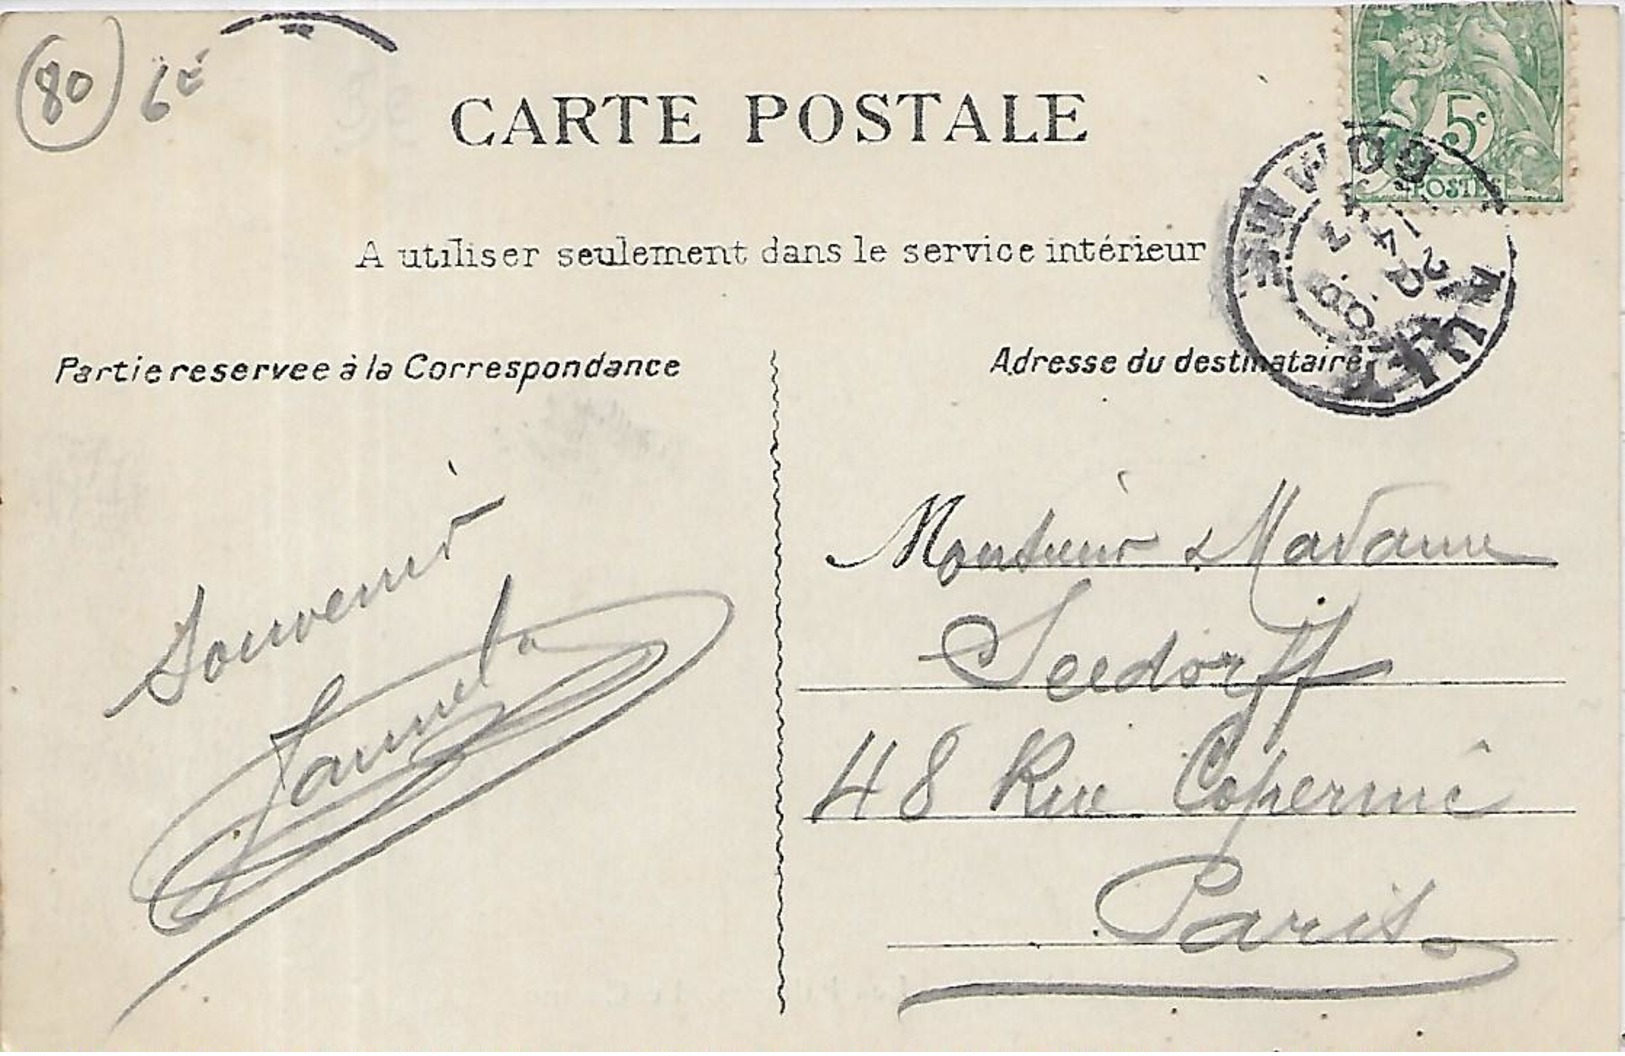 80 6€
CARTE POSTALE
5c
POSTES
A utiliser seulement dans le service intérieur
SOMME
Partie reservee à la Correspondance
Adresse du destinataire
Souvenir
Monsieur & Madame
Seedorff
48 Rue Copernic
Paris